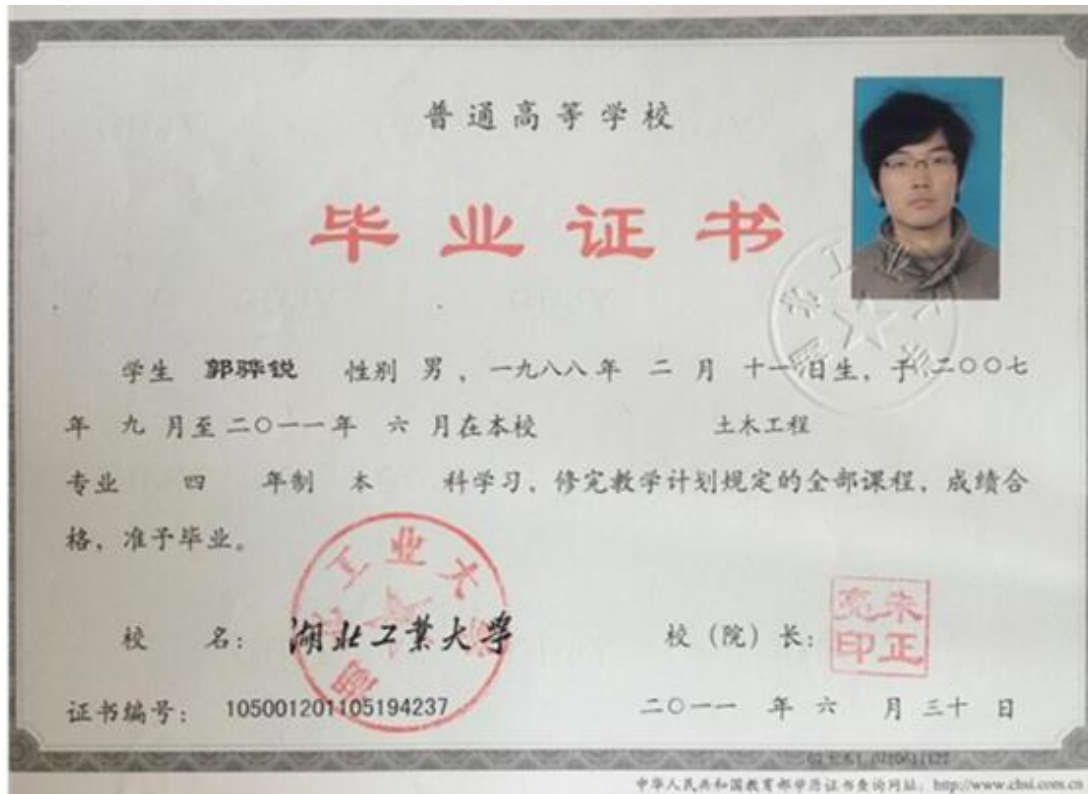 普通高等学校
毕业证书
学生 郭骅锐 性别 男，一九八八年 二 月 十一日生，于二〇〇七
年 九 月至二〇一一年 六 月在本校 土木工程
专业 四 年制 本 科学习，修完教学计划规定的全部课程，成绩合
格，准予毕业。
校 名： 湖北工業大學
校（院）长： 朱正亮印
证书编号： 105001201105194237
二〇一一 年 六 月 三十 日
中华人民共和国教育部学历证书查询网址：http://www.chsi.com.cn